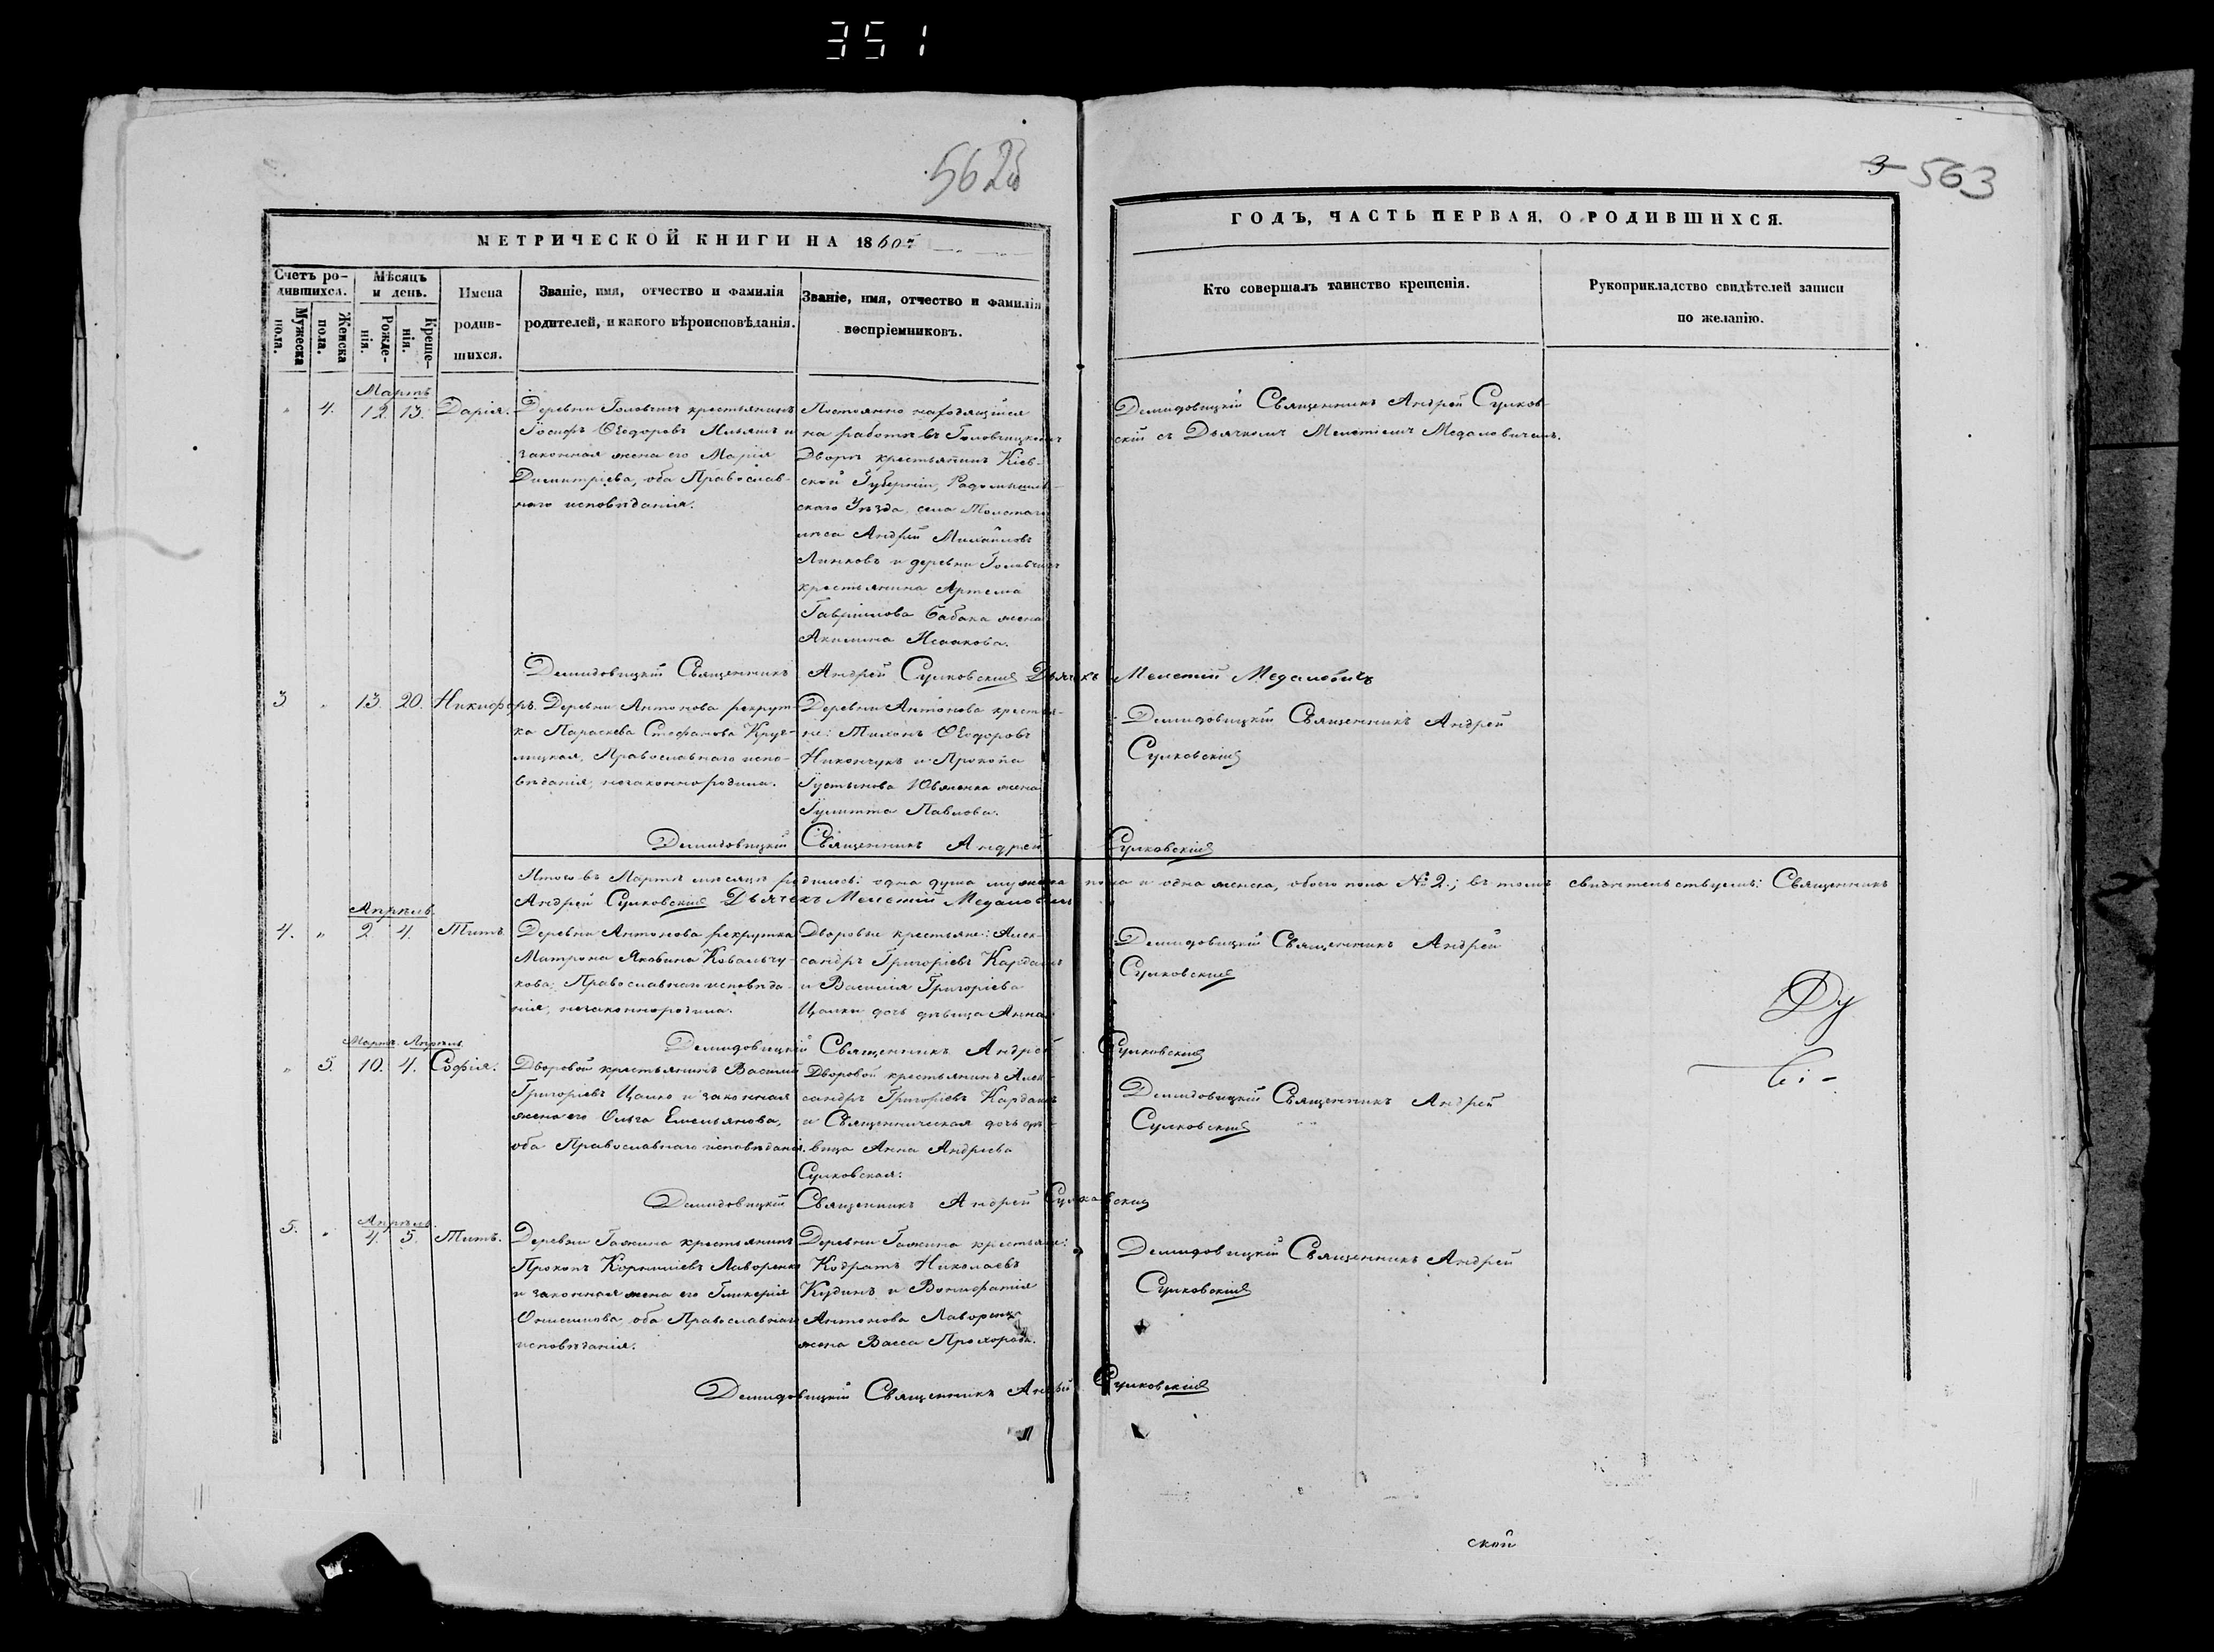 351
562об
3 563
МЕТРИЧЕСКОЙ КНИГИ НА 1860й
ГОДЪ, ЧАСТЬ ПЕРВАЯ, О РОДИВШИХСЯ.
Счетъ ро-
дившихся.
Мужеска пола.
Женска пола.
Мѣсяцъ
и день.
Рожде-
нія.
Креще-
нія.
Имена
родив-
шихся.
Званіе, имя, отчество и фамилія
родителей, и какого вѣроисповѣданія.
Званіе, имя, отчество и фамилія
воспріемниковъ.
Кто совершалъ таинство крещенія.
Рукоприкладство свидѣтелей записи
по желанію.
Мартъ
„ 4. 12. 13. Дарія.
Деревни Головчицъ крестьянинъ
Іосифъ Ѳеодоровъ и
законная жена его Марія
Димитріева, оба Православ-
наго исповѣданія.
Постоянно находящійся
на работѣ въ Головчицкомъ
Дворѣ крестьянинъ Кіев-
ской Губерніи, Радомысль-
скаго Уѣзда, села Толстаго
лѣса Андрей Михайловъ
и деревни Головчицъ
крестьянина Артема
Гавріилова Бабака жена
Акилина Исаакова.
Демидовицкій Священникъ Андрей Сулков-
скій съ Дьячкомъ Мелетіемъ Медаловичемъ.
Демидовицкій Священникъ Андрей Сулковскій Дьячекъ Мелетій Медаловичъ
3 „ 13. 20. Никифоръ.
Деревни Антонова рекрут-
ка Параскева Стефанова Круг-
лицкая, Православнаго испо-
вѣданія, незаконно родила.
Деревни Антонова крестья-
не: Тихонъ Ѳеодоровъ
Никончукъ и Прокопа
Іустинова жена
Іулитта Павлова.
Демидовицкій Священникъ Андрей
Сулковскій
Демидовицкій Священникъ Андрей Сулковскій
Итого въ Мартѣ мѣсяцѣ родилось: одна душа мужеска пола и одна женска, обоего пола № 2.; въ томъ свидѣтельствуемъ: Священникъ
Андрей Сулковскій Дьячекъ Мелетій Медаловичъ
Апрѣль.
4. „ 2 4. Титъ.
Деревни Антонова рекрутка
Матрона Яковина Ковальчу-
кова, Православнаго исповѣда-
нія, незаконно родила.
Дворовые крестьяне: Алек-
сандръ Григоріевъ Кардашъ
и Василія Григоріева
Цалки дочь дѣвица Анна.
Демидовицкій Священникъ Андрей
Сулковскій
Ду
Демидовицкій Священникъ Андрей Сулковскій
Мартъ. Апрѣль.
„ 5. 10. 4. Софія.
Дворовой крестьянинъ Василій
Григоріевъ Цалко и законная
жена его Ольга Емельянова,
оба Православнаго исповѣданія.
Дворовой крестьянинъ Алек-
сандръ Григоріевъ Кардашъ
и Священническая дочь дѣ-
вица Анна Андреева
Сулковская.
Демидовицкій Священникъ Андрей
Сулковскій
Демидовицкій Священникъ Андрей Сулковскій
Апрѣль.
5. „ 4. 5. Титъ.
Деревни Гажина крестьянинъ
Прокопъ Корниліевъ Лаворенко
и законная жена его Гликерія
Онисимова, оба Православнаго
исповѣданія.
Деревни Гажина крестьяне:
Кодратъ Николаевъ
Кудинъ и Вонифатія
Антонова Лаворенка
жена Васса Прохорова.
Демидовицкій Священникъ Андрей
Сулковскій
Демидовицкій Священникъ Андрей Сулковскій
ской